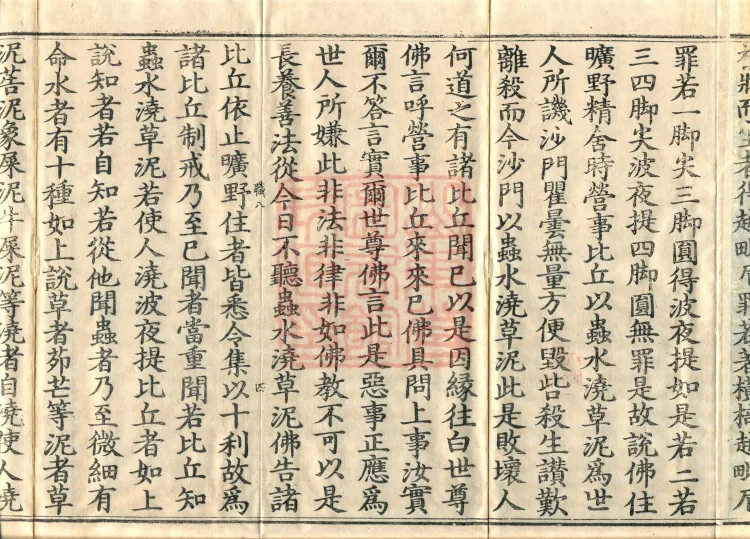 將而坐者得越毗尼罪若著越毗尼
罪若一脚尖三脚圓得波夜提如是若二若
三四脚尖波夜提四脚圓無罪是故說佛住
曠野精舍時營事比丘以蟲水澆草泥爲世
人所譏沙門瞿曇無量方便毀呰殺生讚歎
離殺而今沙門以蟲水澆草泥此是敗壞人
何道之有諸比丘聞已以是因緣往白世尊
佛言呼營事比丘來來已佛具問上事汝實
爾不答言實爾世尊佛言此是惡事正應爲
世人所嫌此非法非律非如佛教不可以是
長養善法從今日不聽蟲水澆草泥佛告諸
職八
比丘依止曠野住者皆悉令集以十利故爲
諸比丘制戒乃至已聞者當重聞若比丘知
蟲水澆草泥若使人澆波夜提比丘者如上
說知者若自知若從他聞蟲者乃至微細有
命水者有十種如上說草者茆芒等泥者草
泥泥象屎泥牛屎泥等澆者自澆使人澆